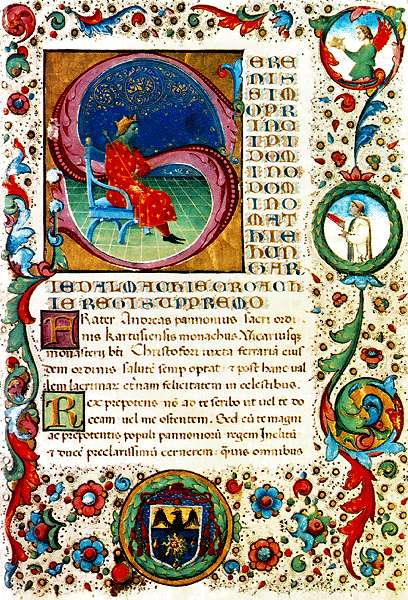 SERE
NIS
SIM
OPR
INC
IPI
DOM
INO
DOM
INO
MAT
HIE
HUN
GAR
IEDALMACHIECROACH
IEREGISUPPREMO
FRater Andreas pannonius sacri ordi
nis kartusiensis monachus Vicariusq;
monasterii bti Christofori iuxta ferrariā eius
dem ordinis salutē semp optat & post hanc val
lem lacrimarū eternam felicitatem in celestibus.
REx prepotens nō ao te scribo ut vel te do
ceam vel me ostentem. Sed cū te magnū
ac prepotentis populi pannoniorū regem Inclitū
& ducē preclarissimū cernerem: quivis omnibus